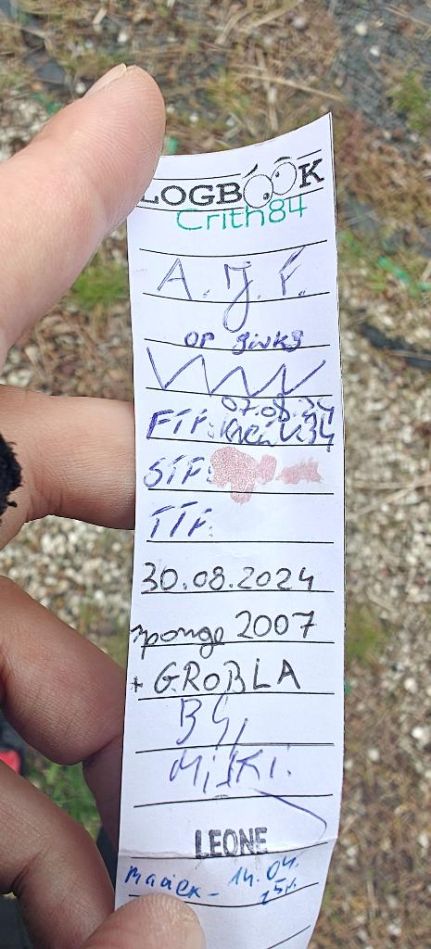 LOGBOOK
Crith84
A. J. F.
op ginks
FTF: 07.08.24
STF:
TTF:
30.08.2024
sponge 2007
+ GROBLA
MiSKi.
LEONE
Maciek - 14.04.
25r.